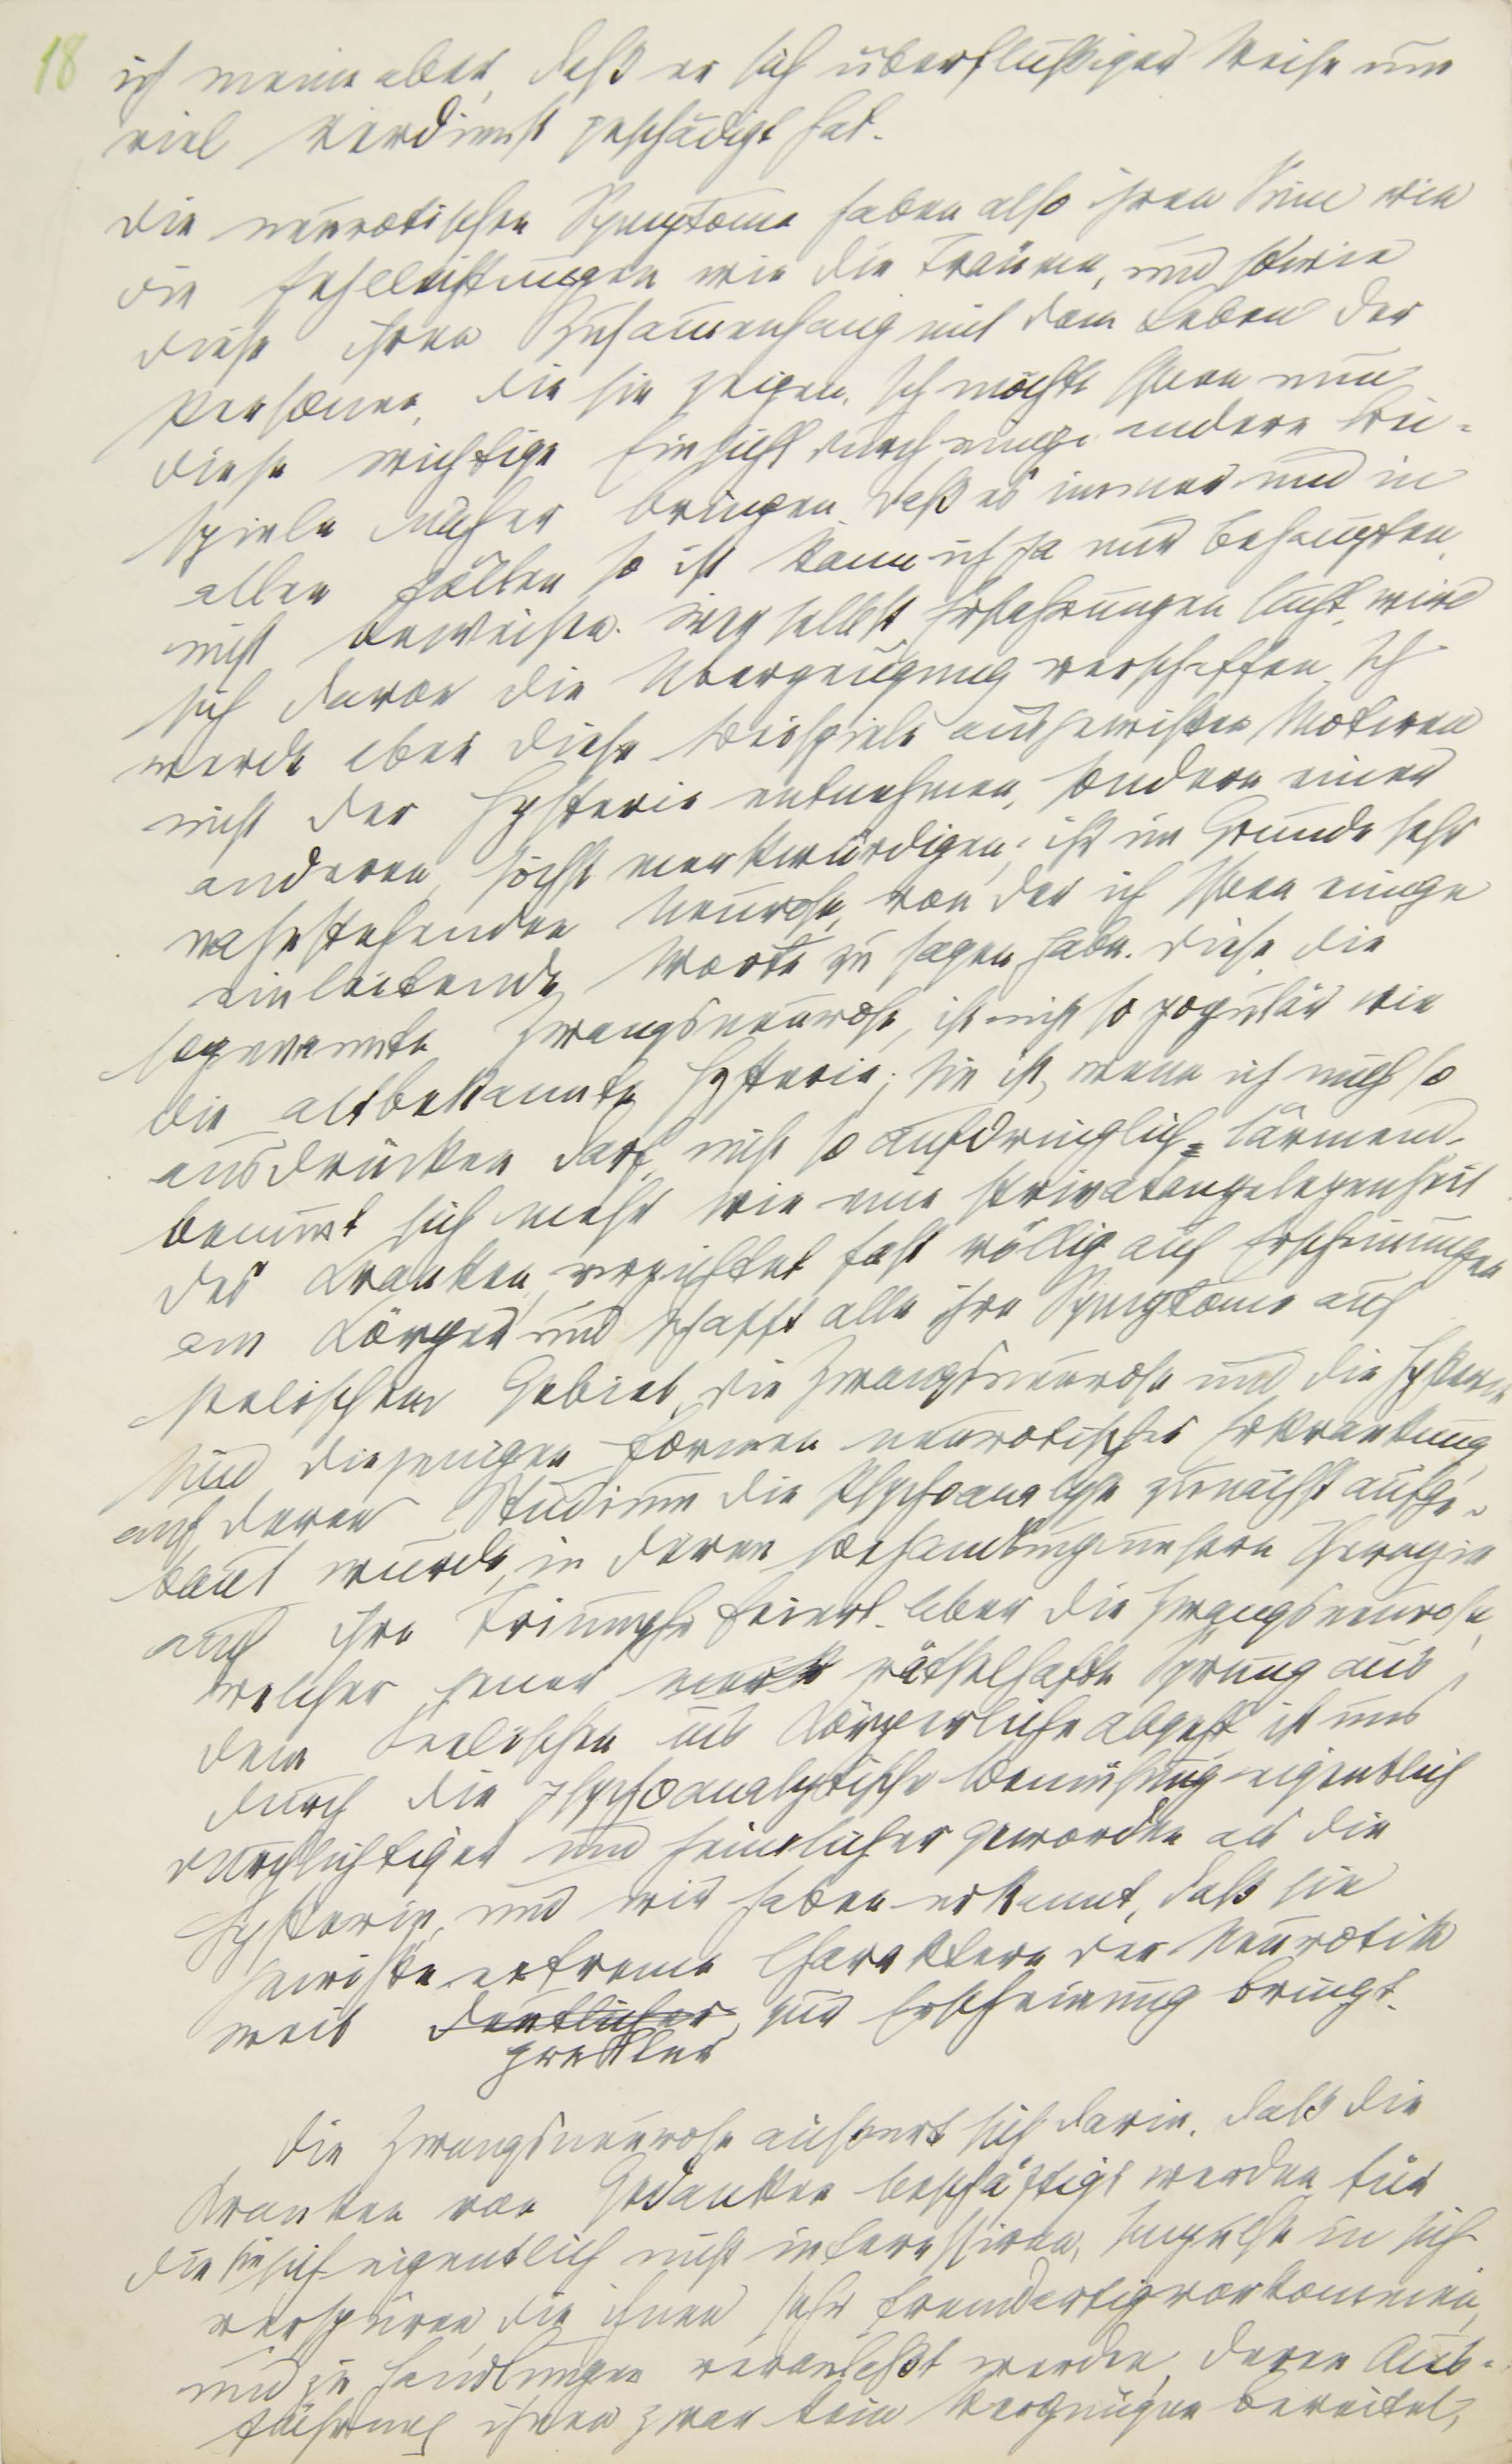 18
ich meine aber, daß er sich überflüssiger Weise um
viel Verdienst geschädigt hat.
Die neurotischen Symptome haben also ihren Sinn wie
die Fehlleistungen wie die Träume, und sowie
diese ihren Zusammenhang mit dem Leben der
Personen, die sie zeigen. Ich möchte Ihnen nun
diese wichtige Einsicht durch einige andere Bei-
spiele näher bringen. Daß es immer und in
allen Fällen so ist kann ich ja nur behaupten,
nicht beweisen. Wer selbst Erfahrungen sucht, wird
sich davon die Überzeugung verschaffen. Ich
werde aber diese Beispiele aus gewissen Motiven
nicht der Hysterie entnehmen, sondern einer
anderen, höchst merkwürdigen, ihr im Grunde sehr
nahestehenden Neurose, von der ich Ihnen einige
einleitende Worte zu sagen habe. Diese, die
sogenannte Zwangsneurose, ist nicht so populär wie
die altbekannte Hysterie; sie ist, wenn ich mich so
ausdrücken darf, nicht so aufdringlich-lärmend,
benimt sich mehr wie eine Privatangelegenheit
des Kranken, verzichtet fast völlig auf Erscheinungen
am Körper und schafft alle ihre Symptome auf
seelischem Gebiet. Die Zwangsneurose und die Hysterie
sind diejenigen Formen neurotischer Erkrankung,
auf deren Studium die Psychoanalyse zunächst aufge-
baut wurde, in deren Behandlung unsere Therapie
auch ihre Triumphe feiert. Aber die Zwangsneurose,
welcher jener rätselhafte Sprung aus
dem Seelischen ins Körperliche abgeht ist uns
durch die psychoanalytische Bemühung eigentlich
durchsichtiger und heimlicher geworden als die
Hysterie, und wir haben erkannt, daß sie
gewisse extreme Charaktere der Neurotik
weit deutlicher zur Erscheinung bringt.
greller
Die Zwangsneurose äußert sich darin, daß die
Kranken von Gedanken beschäftigt werden, für
die sie sich eigentlich nicht interessiren, Impulse in sich
verspüren, die ihnen sehr fremdartig vorkommen,
und zu Handlungen veranlaßt werden, deren Aus-
führung ihnen zwar kein Vergnügen bereitet,